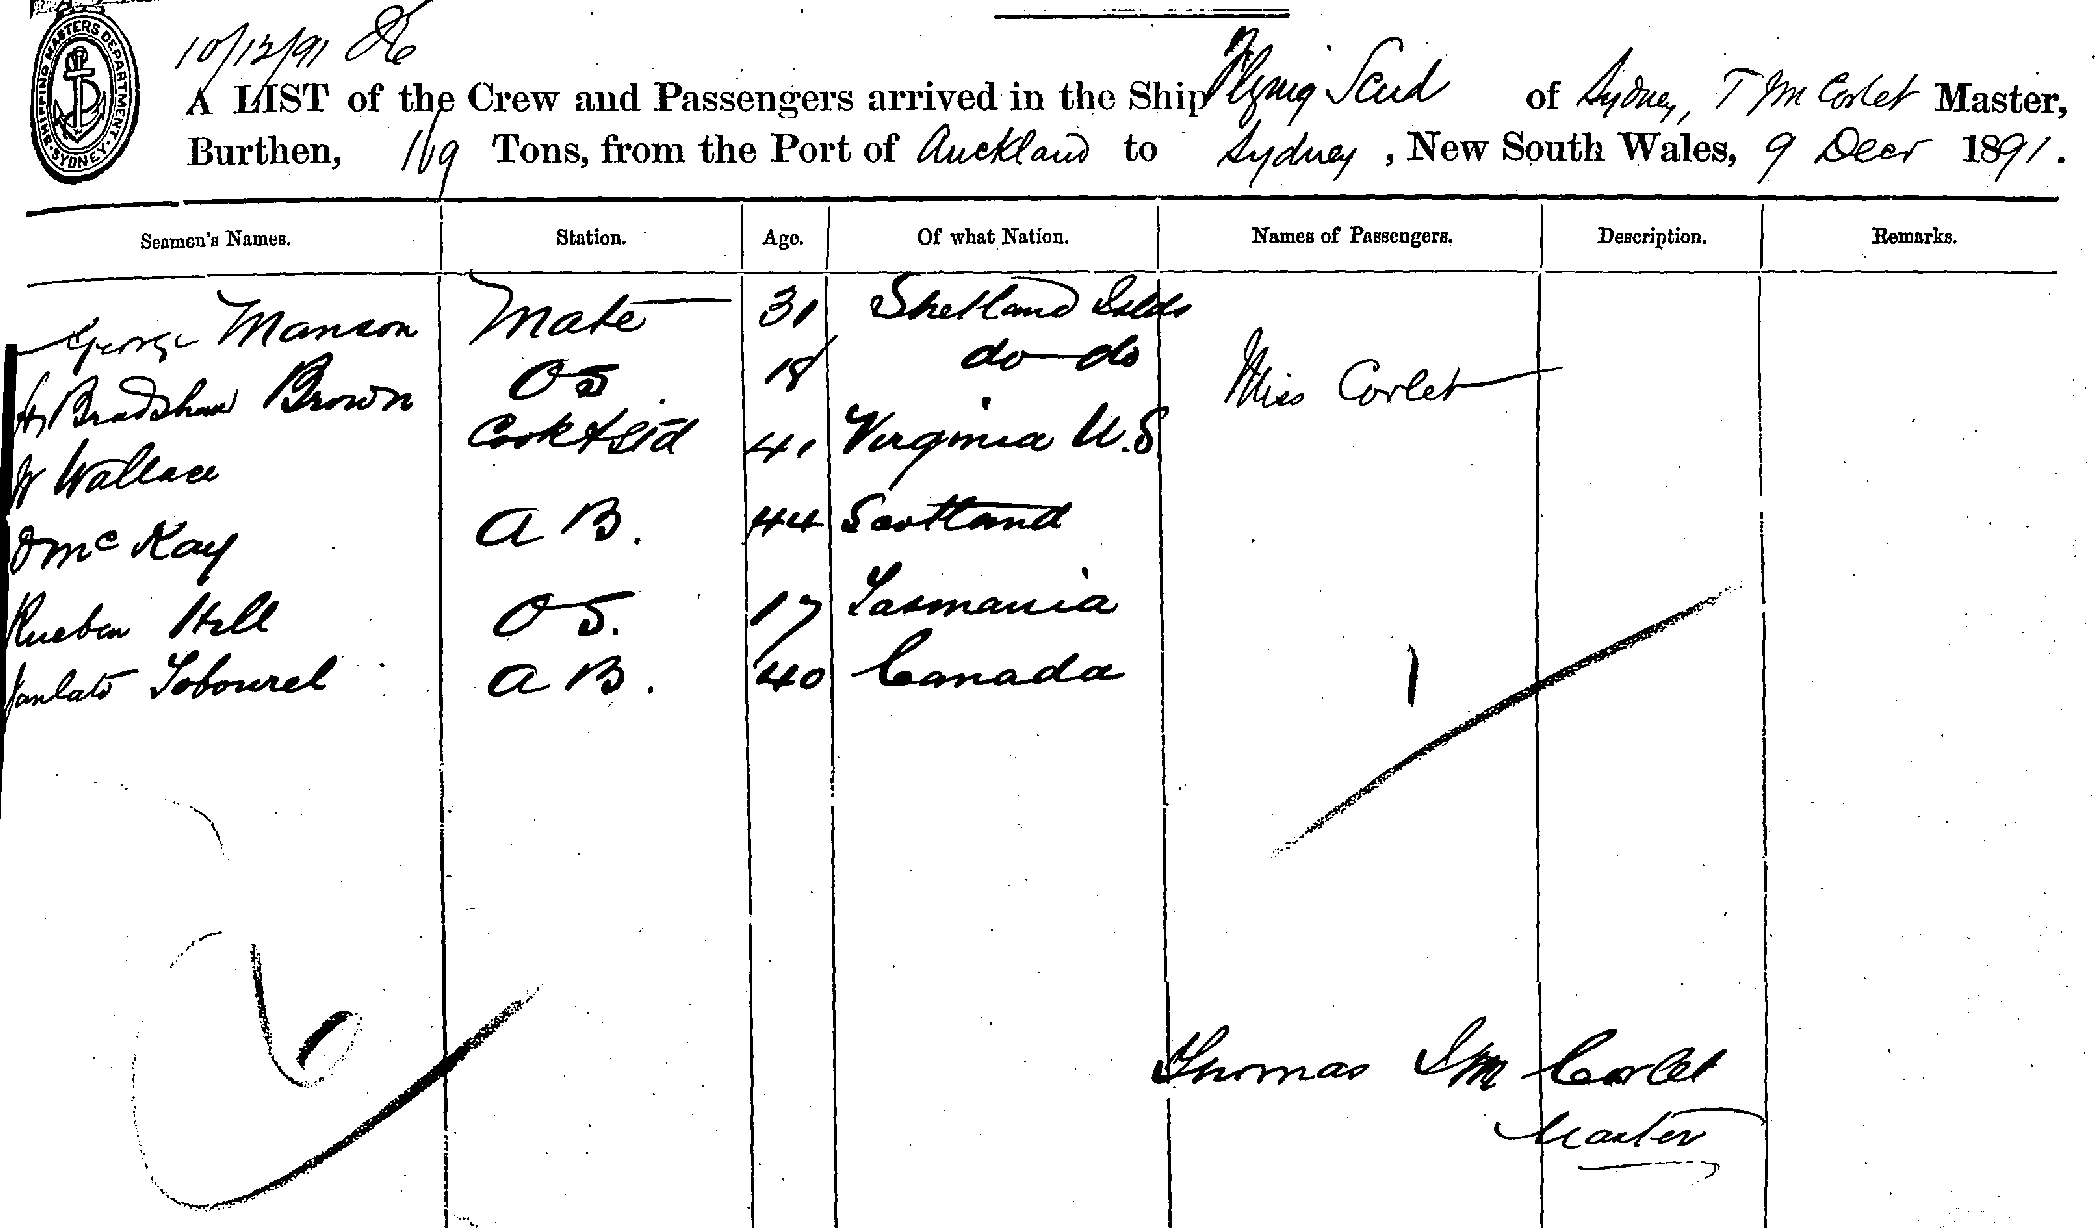 SHIPPING MASTERS DEPARTMENT
SYDNEY
10/12/91
A LIST of the Crew and Passengers arrived in the Ship Flying Scud of Sydney, T M Corlet Master,
Burthen, 119 Tons, from the Port of Auckland to Sydney, New South Wales, 9 Decr 1891.
Seamen's Names. Station. Age. Of what Nation. Names of Passengers. Description. Remarks.
George Manson Mate 31 Shetland Islds
H Bradshaw Brown OS 18 do do Miss Corlet
W Wallace Cook & Std 41 Virginia U.S
D McKay A B. 44 Scotland
Rueben Hill OS. 17 Tasmania
Tobourel A B. 40 Canada
1
6
Thomas M Corlet
Master